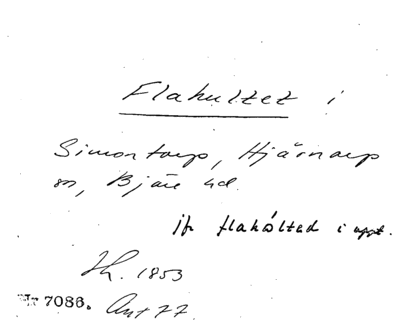 Flahultet i
Simontorp, Hjärnarp
sn, Bjäre hd.
jfr flahóltad i uppt.
Th. 1853
Hr 7086. Ant 77